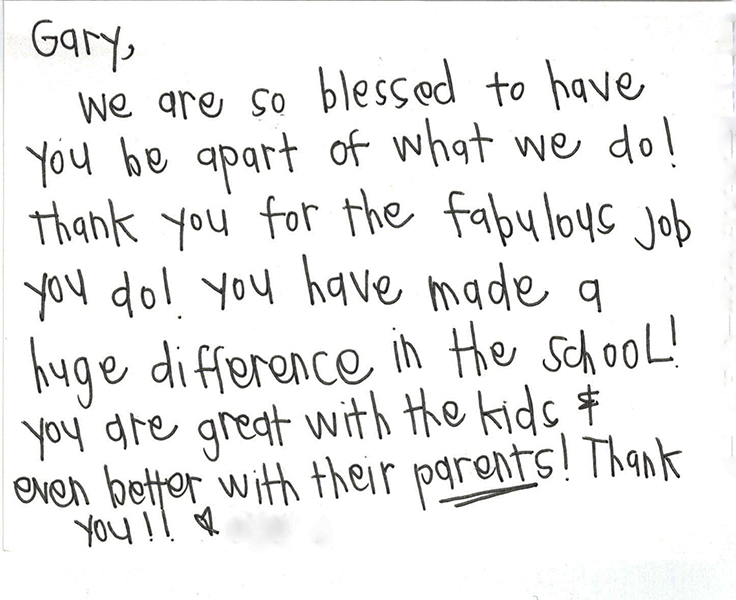 Gary,
We are so blessed to have
you be apart of what we do!
Thank you for the fabulous job
you do! you have made a
huge difference in the school!
you are great with the kids &
even better with their parents! Thank
you!!